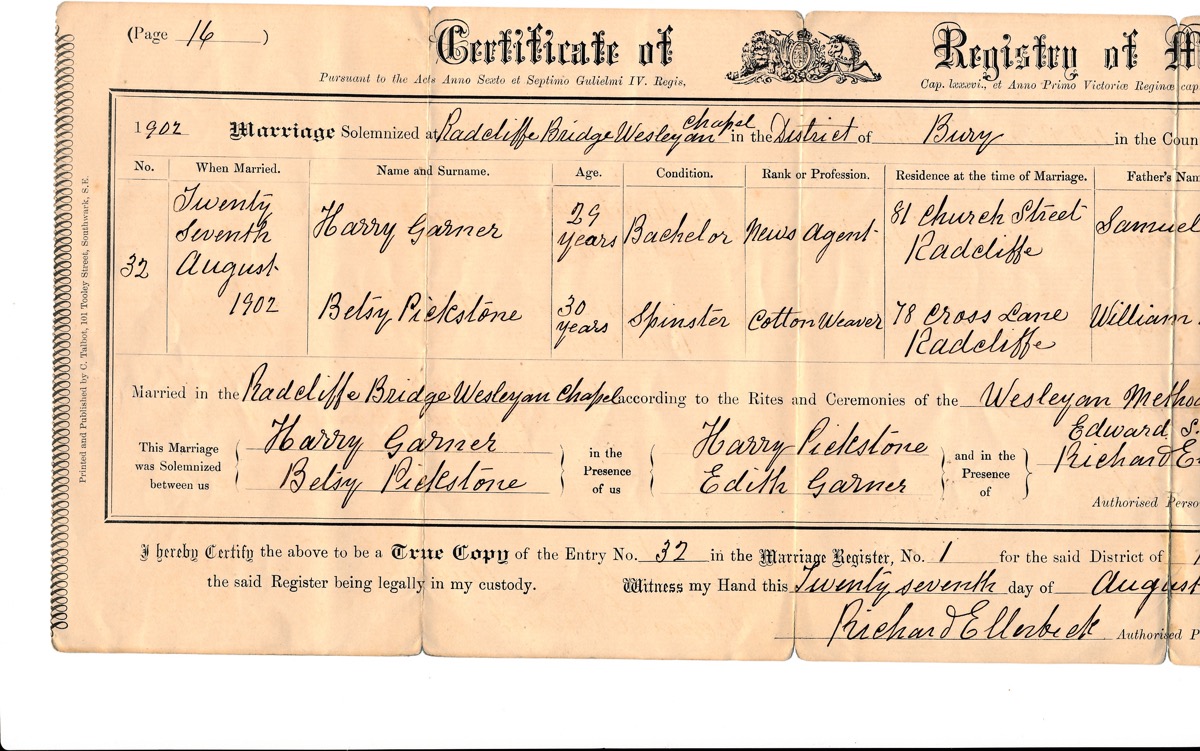 (Page 16 )
Certificate of Registry of M
Pursuant to the Acts Anno Sexto et Septimo Gulielmi IV. Regis, Cap. lxxxvi., et Anno Primo Victoriæ Reginæ cap
1902 Marriage Solemnized at Radcliffe Bridge Wesleyan Chapel in the District of Bury in the Coun
No. When Married. Name and Surname. Age. Condition. Rank or Profession. Residence at the time of Marriage. Father's Nam
32
Twenty
Seventh
August
1902
Harry Garner
29
years
Bachelor
News Agent
81 Church Street
Radcliffe
Samuel
Betsy Pickstone
30
years
Spinster
Cotton Weaver
78 Cross Lane
Radcliffe
William
Married in the Radcliffe Bridge Wesleyan Chapel according to the Rites and Ceremonies of the Wesleyan Metho
This Marriage
was Solemnized
between us
Harry Garner
Betsy Pickstone
in the
Presence
of us
Harry Pickstone
Edith Garner
and in the
Presence
of
Edward S.
Richard E
Authorised Perso
I hereby Certify the above to be a True Copy of the Entry No. 32 in the Marriage Register, No. 1 for the said District of
the said Register being legally in my custody. Witness my Hand this Twenty seventh day of August
Richard Ellerbeck Authorised P
Printed and Published by C. Talbot, 101 Tooley Street, Southwark, S.E.